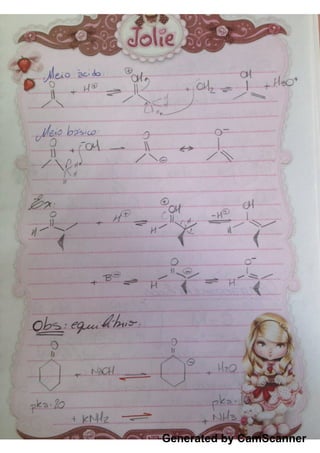 Jolie
Meio ácido:
O + H⊕ ⇌ ⊕OH + OH₂ ⇌ OH + H₃O⊕
H
Meio básico:
O + OH → O ⊖ ↔ O⁻
H
Ex:
O H + H⊕ ⇌ ⊕OH H -H⊕ ⇌ OH H
+ B⊖ ⇌ O H ⊖ ⇌ O⁻ H
Obs: equilíbrio:
O + NaOH ⇌ O ⊖ + H₂O
pka=20
+ KNH₂ ⇌ + NH₃
Generated by CamScanner